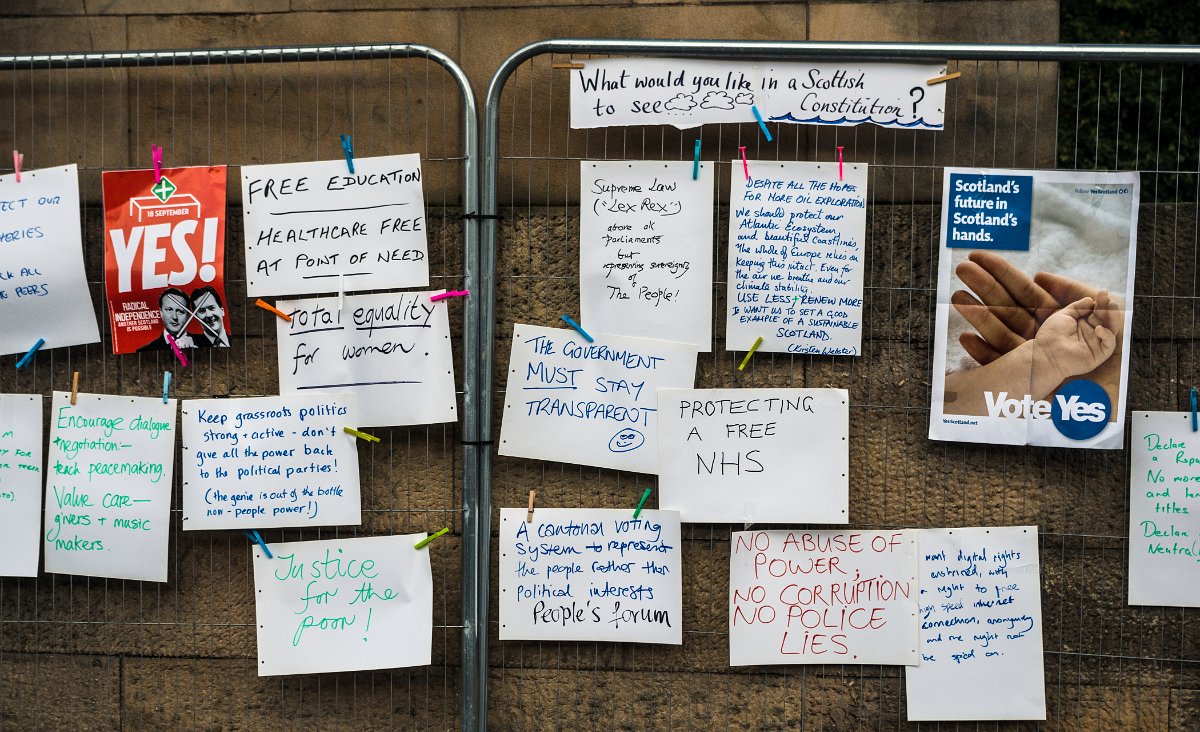 What would you like in a Scottish
to see Constitution?
ECT OUR
ERIES
CK ALL
PEERS
18 SEPTEMBER
YES!
RADICAL
INDEPENDENCE
ANOTHER SCOTLAND
IS POSSIBLE
FREE EDUCATION
HEALTHCARE FREE
AT POINT OF NEED
Total equality
for women.
Supreme Law
("Lex Rex")
above all
parliaments
but
representing sovereignty
of
The People!
DESPITE ALL THE HOPES
FOR MORE OIL EXPLORATION
We should protect our
Atlantic Ecosystem,
and beautiful Coastlines,
The whole of Europe relies on
keeping this intact. Even for
the air we breathe and our
climate stability.
USE LESS + RENEW MORE
I WANT US TO SET A GOOD
EXAMPLE OF A SUSTAINABLE
SCOTLAND.
(Kirsten Webster)
Scotland's
future in
Scotland's
hands.
Follow Yes Scotland
Vote Yes
YesScotland.net
THE GOVERNMENT
MUST STAY
TRANSPARENT
PROTECTING
A FREE
NHS
Y FOR
Encourage dialogue
+ negotiation:-
teach peacemaking.
Value care-
givers + music
makers.
Keep grassroots politics
strong + active - don't
give all the power back
to the political parties!
(the genie is out of the bottle
now - people power!)
Justice
for the
poor!
A cantonal voting
system to represent
the people rather than
political interests
People's forum
NO ABUSE OF
POWER,
NO CORRUPTION
NO POLICE
LIES.
want digital rights
enshrined, with
a right to free
high speed internet
connection, anonymity
and the right not
be spied on.
Declare
a Repu
No more
and he
titles
Declar
Neutral